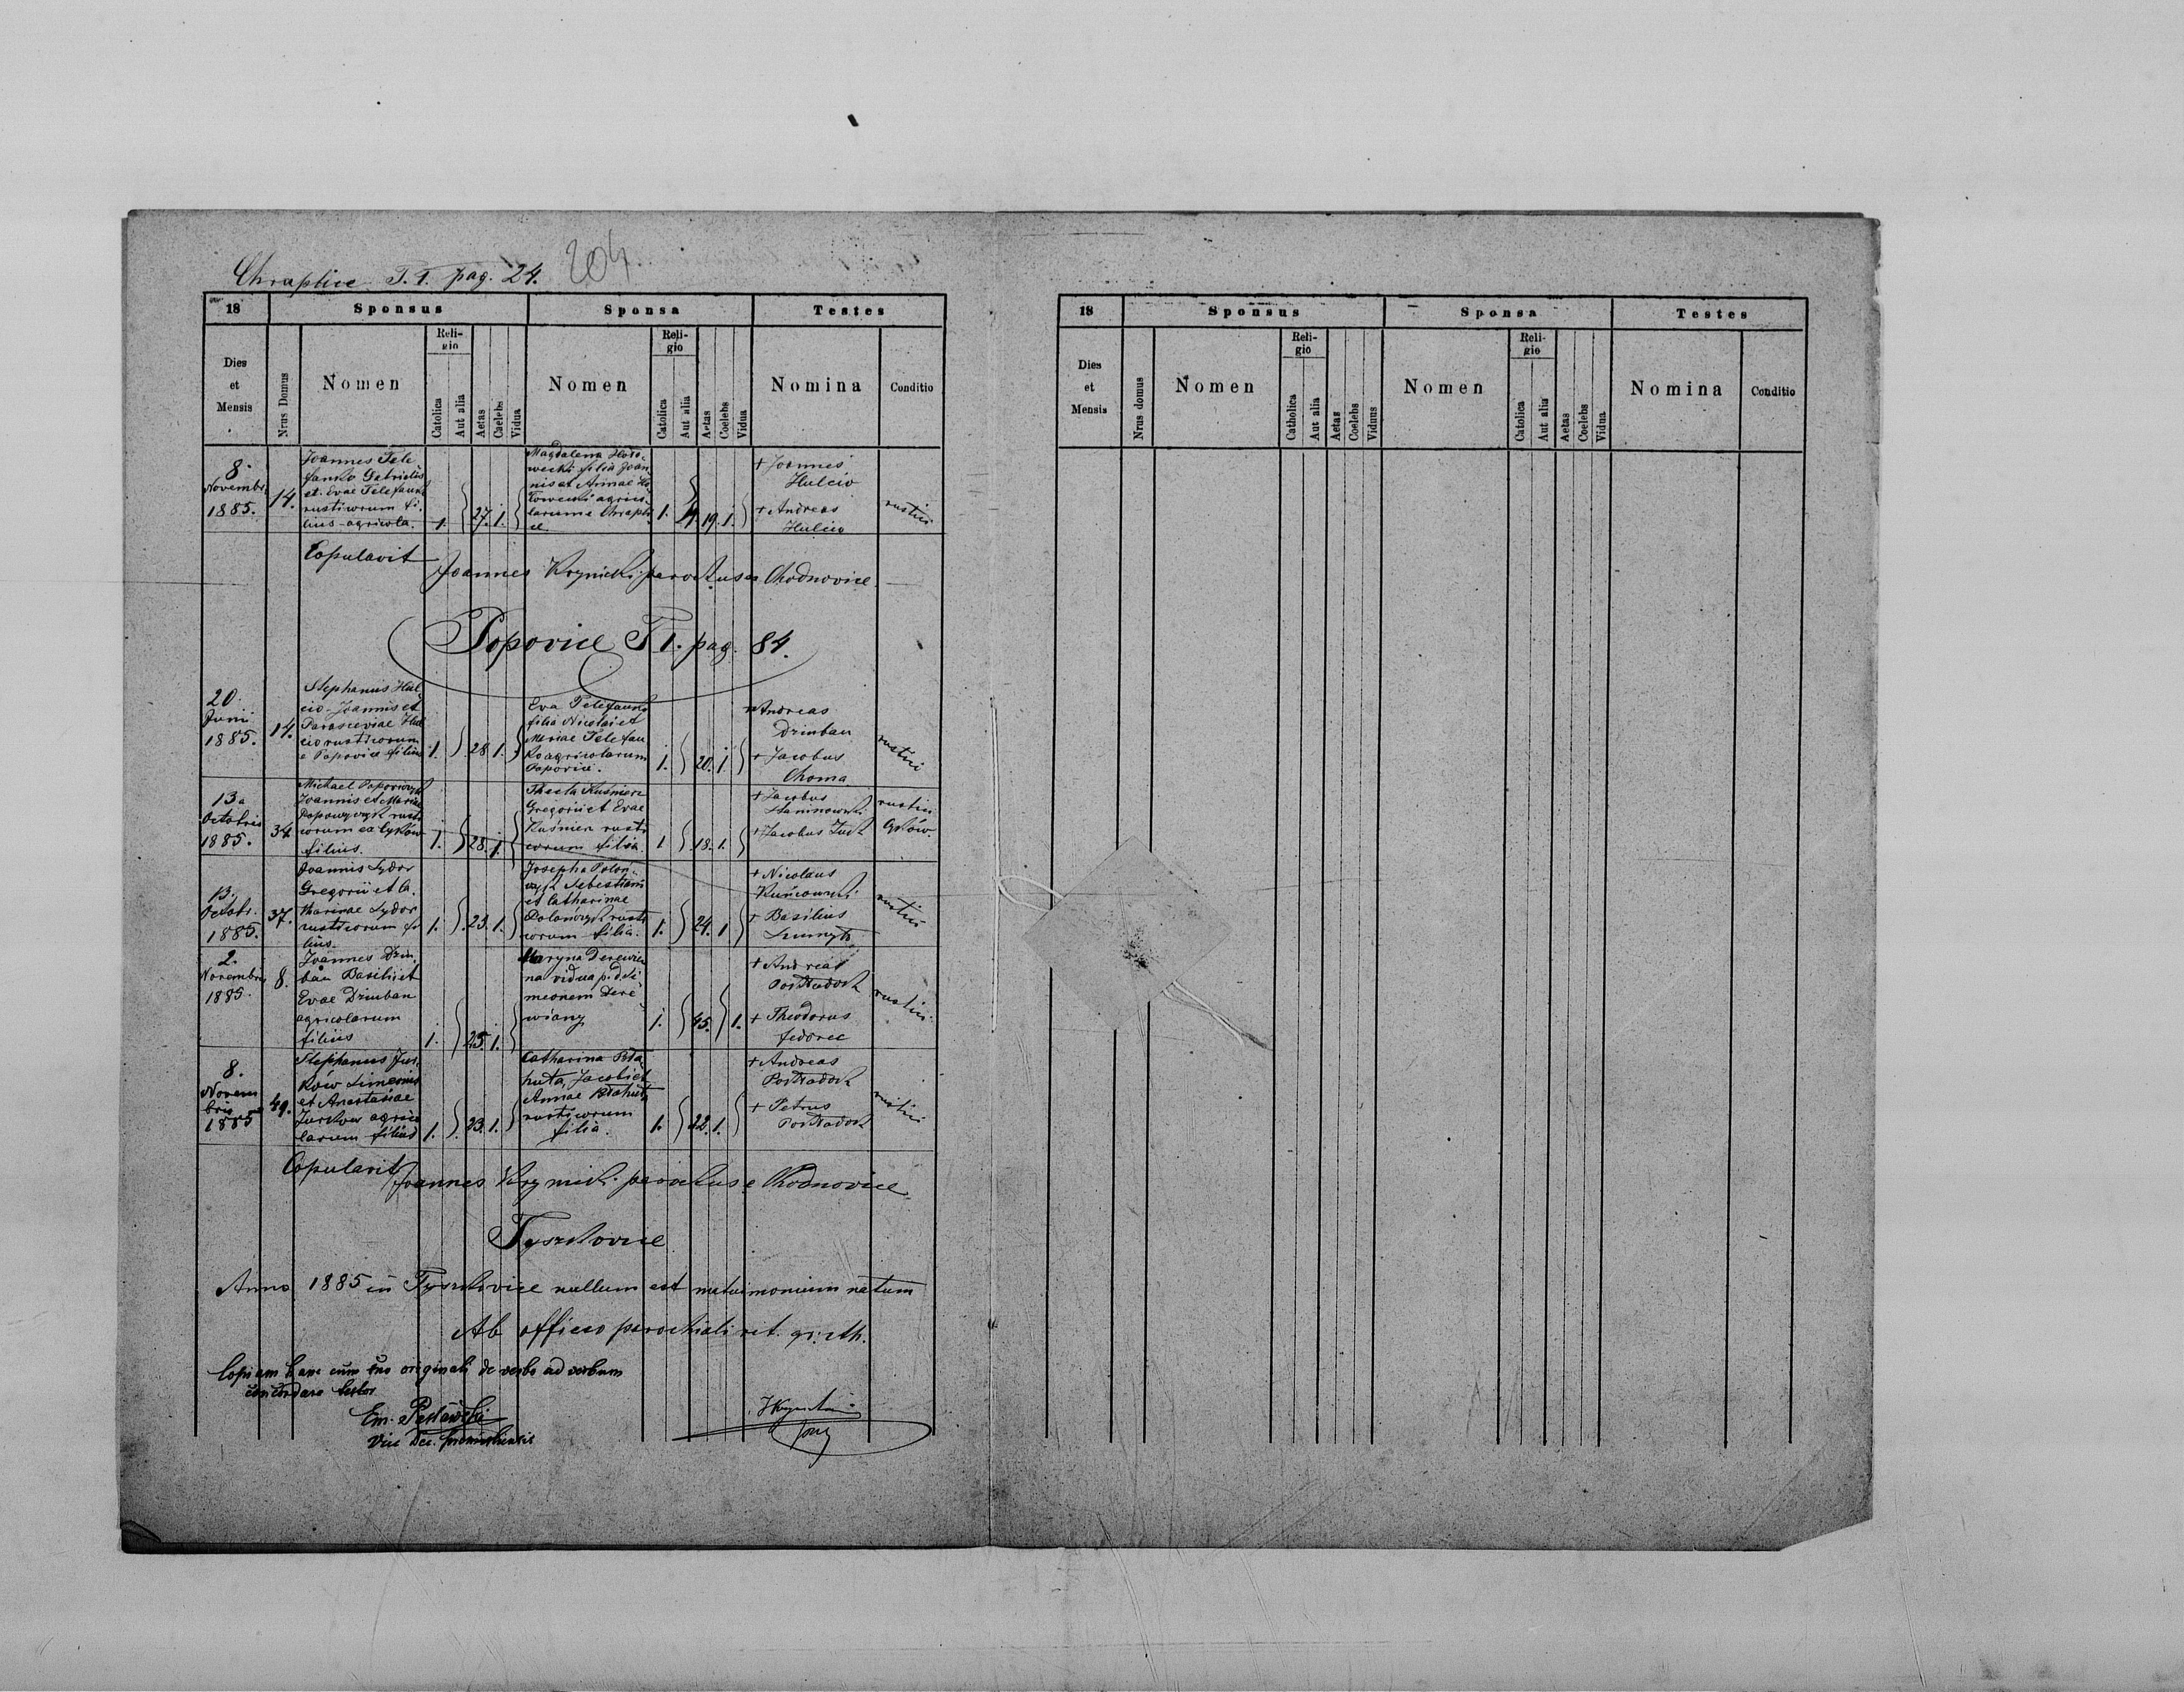 Chraplice T. 1. pag. 24. 204
18 Sponsus Sponsa Testes
Dies et Mensis
Nrus Domus
Nomen
Religio
Catolica
Aut alia
Aetas
Caelebs
Vidua
Nomen
Religio
Catolica
Aut alia
Aetas
Coelebs
Vidua
Nomina
Conditio
8.
Novembr.
1885.
14.
Joannes Tele
fanko Gabrielis
et Evae Telefanko
rusticorum fi
lius agricola.
1. 27. 1.
Magdalena
filia Joan
nis et Annae
agrico
larum e Chrapli
ce
1. 19. 1.
+ Joannes
Hulcio
+ Andreas
Hulcio
rustici
Copulavit
Joannes Krynicki parochus e Chodnovice
Popovice T 1. pag. 84.
20
Junii
1885.
14.
Stephanus Hul
cio Joannis et
Parasceviae Hul
cio rusticorum
e Popovice filius
1. 28 1.
Eva Telefanko
filia Nicolai et
Mariae Telefan
ko agricolarum
Popovice.
1. 20. 1.
+ Andreas
Dziuban
+ Jacobus
Choma
rustici
13a
Octobris
1885.
34
Michael Popowczyk
Joannis et Mariae
Popowczyk rusti
corum ex Cyków
filius.
1. 28. 1.
Thecla Kuśnierz
Gregorii et Evae
Kuśnierz rusti
corum filia.
1 18. 1.
+ Jacobus
+ Jacobus
rustici
Cyków.
13.
Octobr.
1885.
37.
Joannis Sydor
Gregorii et Ca
tharinae Sydor
rusticorum fi
lius.
1. 23. 1.
Josepha Polon
czyk Sebestiani
et Catharinae
Polonczyk rusti
corum filia.
1. 24. 1
+ Nicolaus
+ Basilius
rustici
2.
Novembris
1885.
8.
Joannes Dziu
ban Basilii et
Evae Dziuban
agricolarum
filius
1. 25. 1.
Maryna Derewia
na vidua p. d. Si
meonem Dere
wiany
1. 45. 1.
+ Andreas
Postradoch
+ Theodorus
Fedorec
rustici
8.
Novem
bris
1885
49.
Stephanus Jur
ków Simeonis
et Anastasiae
Jurków agrico
larum filius
1. 23. 1.
Catharina
Jacobi et
Annae
rusticorum
filia.
1. 22. 1.
+ Andreas
Postradoch
+ Petrus
Postradoch
rustici
Copulavit Joannes Krynicki parochus e Chodnovice
Tyszkovice
Anno 1885 in Tyszkovice nullum est matrimonium natum
Ab officio parochiali rit. gr. cth.
Copiam hanc cum suo originali de verbo ad verbum
concordare testor
Em.
Vice Dec.
18 Sponsus Sponsa Testes
Dies et Mensis
Nrus domus
Nomen
Religio
Catholica
Aut alia
Aetas
Coelebs
Viduus
Nomen
Religio
Catolica
Aut alia
Aetas
Coelebs
Vidua
Nomina
Conditio